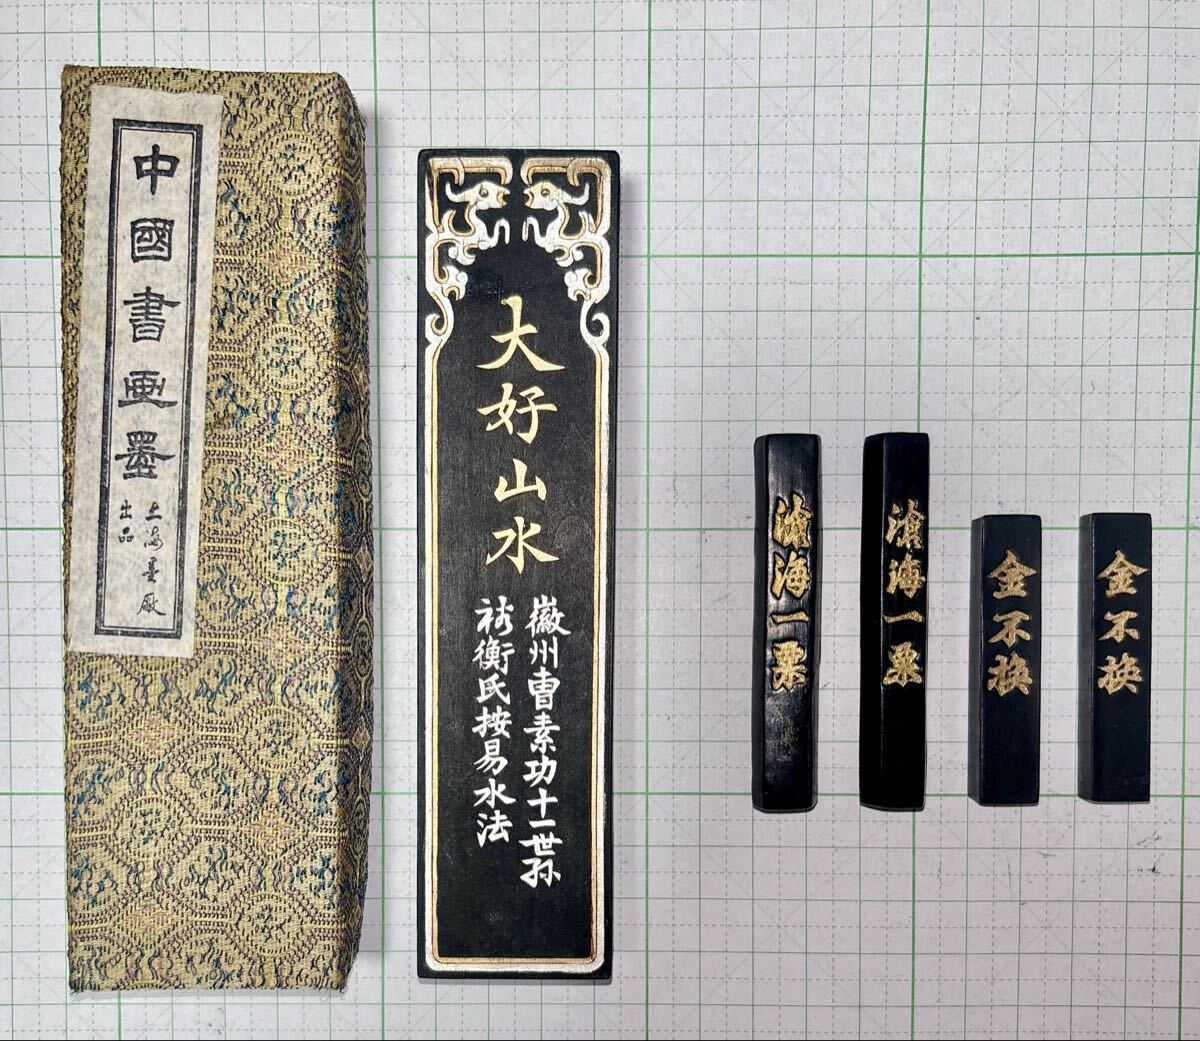 中國書画墨
上海墨厰
出品
大好山水
徽州曹素功十一世孙
裕衡氏按易水法
滄海一粟
滄海一粟
金不换
金不换